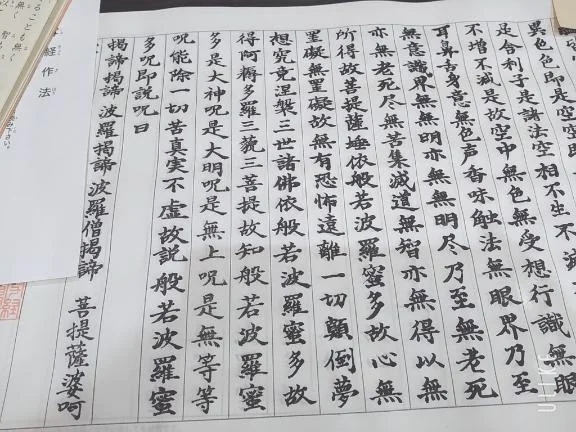 異色色即是空
是舍利子是諸法空相不生不滅
不増不減是故空中無色無受想行識無眼
耳鼻舌身意無色声香味触法無眼界乃至
無意識界無無明亦無無明尽乃至無老死
亦無老死尽無苦集滅道無智亦無得以無
所得故菩提薩埵依般若波羅蜜多故心無
罣礙無罣礙故無有恐怖遠離一切顛倒夢
想究竟涅槃三世諸佛依般若波羅蜜多故
得阿耨多羅三藐三菩提故知般若波羅蜜
多是大神呪是大明呪是無上呪是無等等
呪能除一切苦真実不虚故説般若波羅蜜
多呪即説呪曰
掲諦掲諦 波羅掲諦 波羅僧掲諦 菩提薩婆呵
経作法
ることも無く
智も
ULIKE